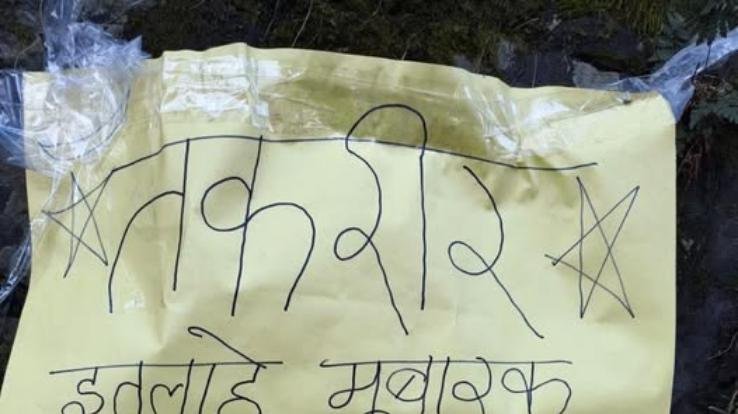 तकरीर
इतलाहे मूबारक